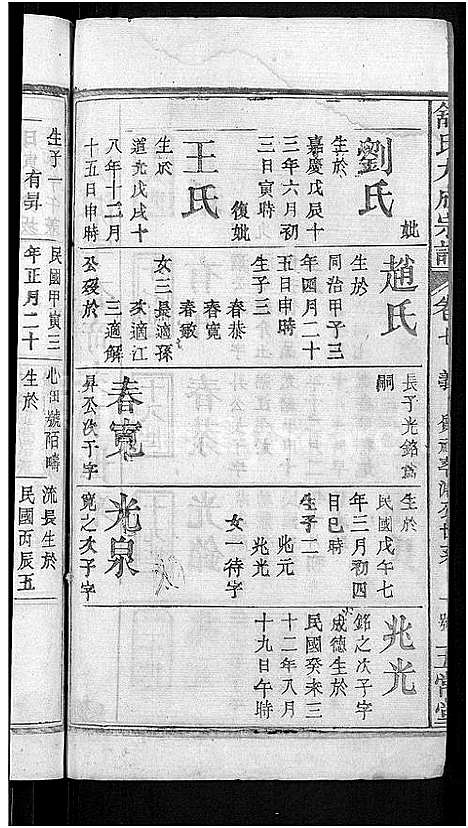 舒氏大成宗譜
卷七
五常堂
劉氏
妣
生於
嘉慶戊辰十
三年六月初
三日寅時
王氏
復妣
生於
道光戊戌十
八年十二月
十五日申時
趙氏
生於
同治甲子三
年四月二十
五日申時
生子三
春恭
春寬
春敏
女三長適孫
次適江
三適解
公歿於
長子光銘為
嗣
春寬
昇公次子字
生於
民國戊午七
年三月初四
日巳時
生子二
兆元
兆光
女一待字
光泉
寬之次子字
兆光
銘之次子字
成德生於
民國癸未三
十二年八月
十九日午時
生子一
有昇
民國甲寅三
年正月二十
心田號陌疇
生於
流長生於
民國丙辰五